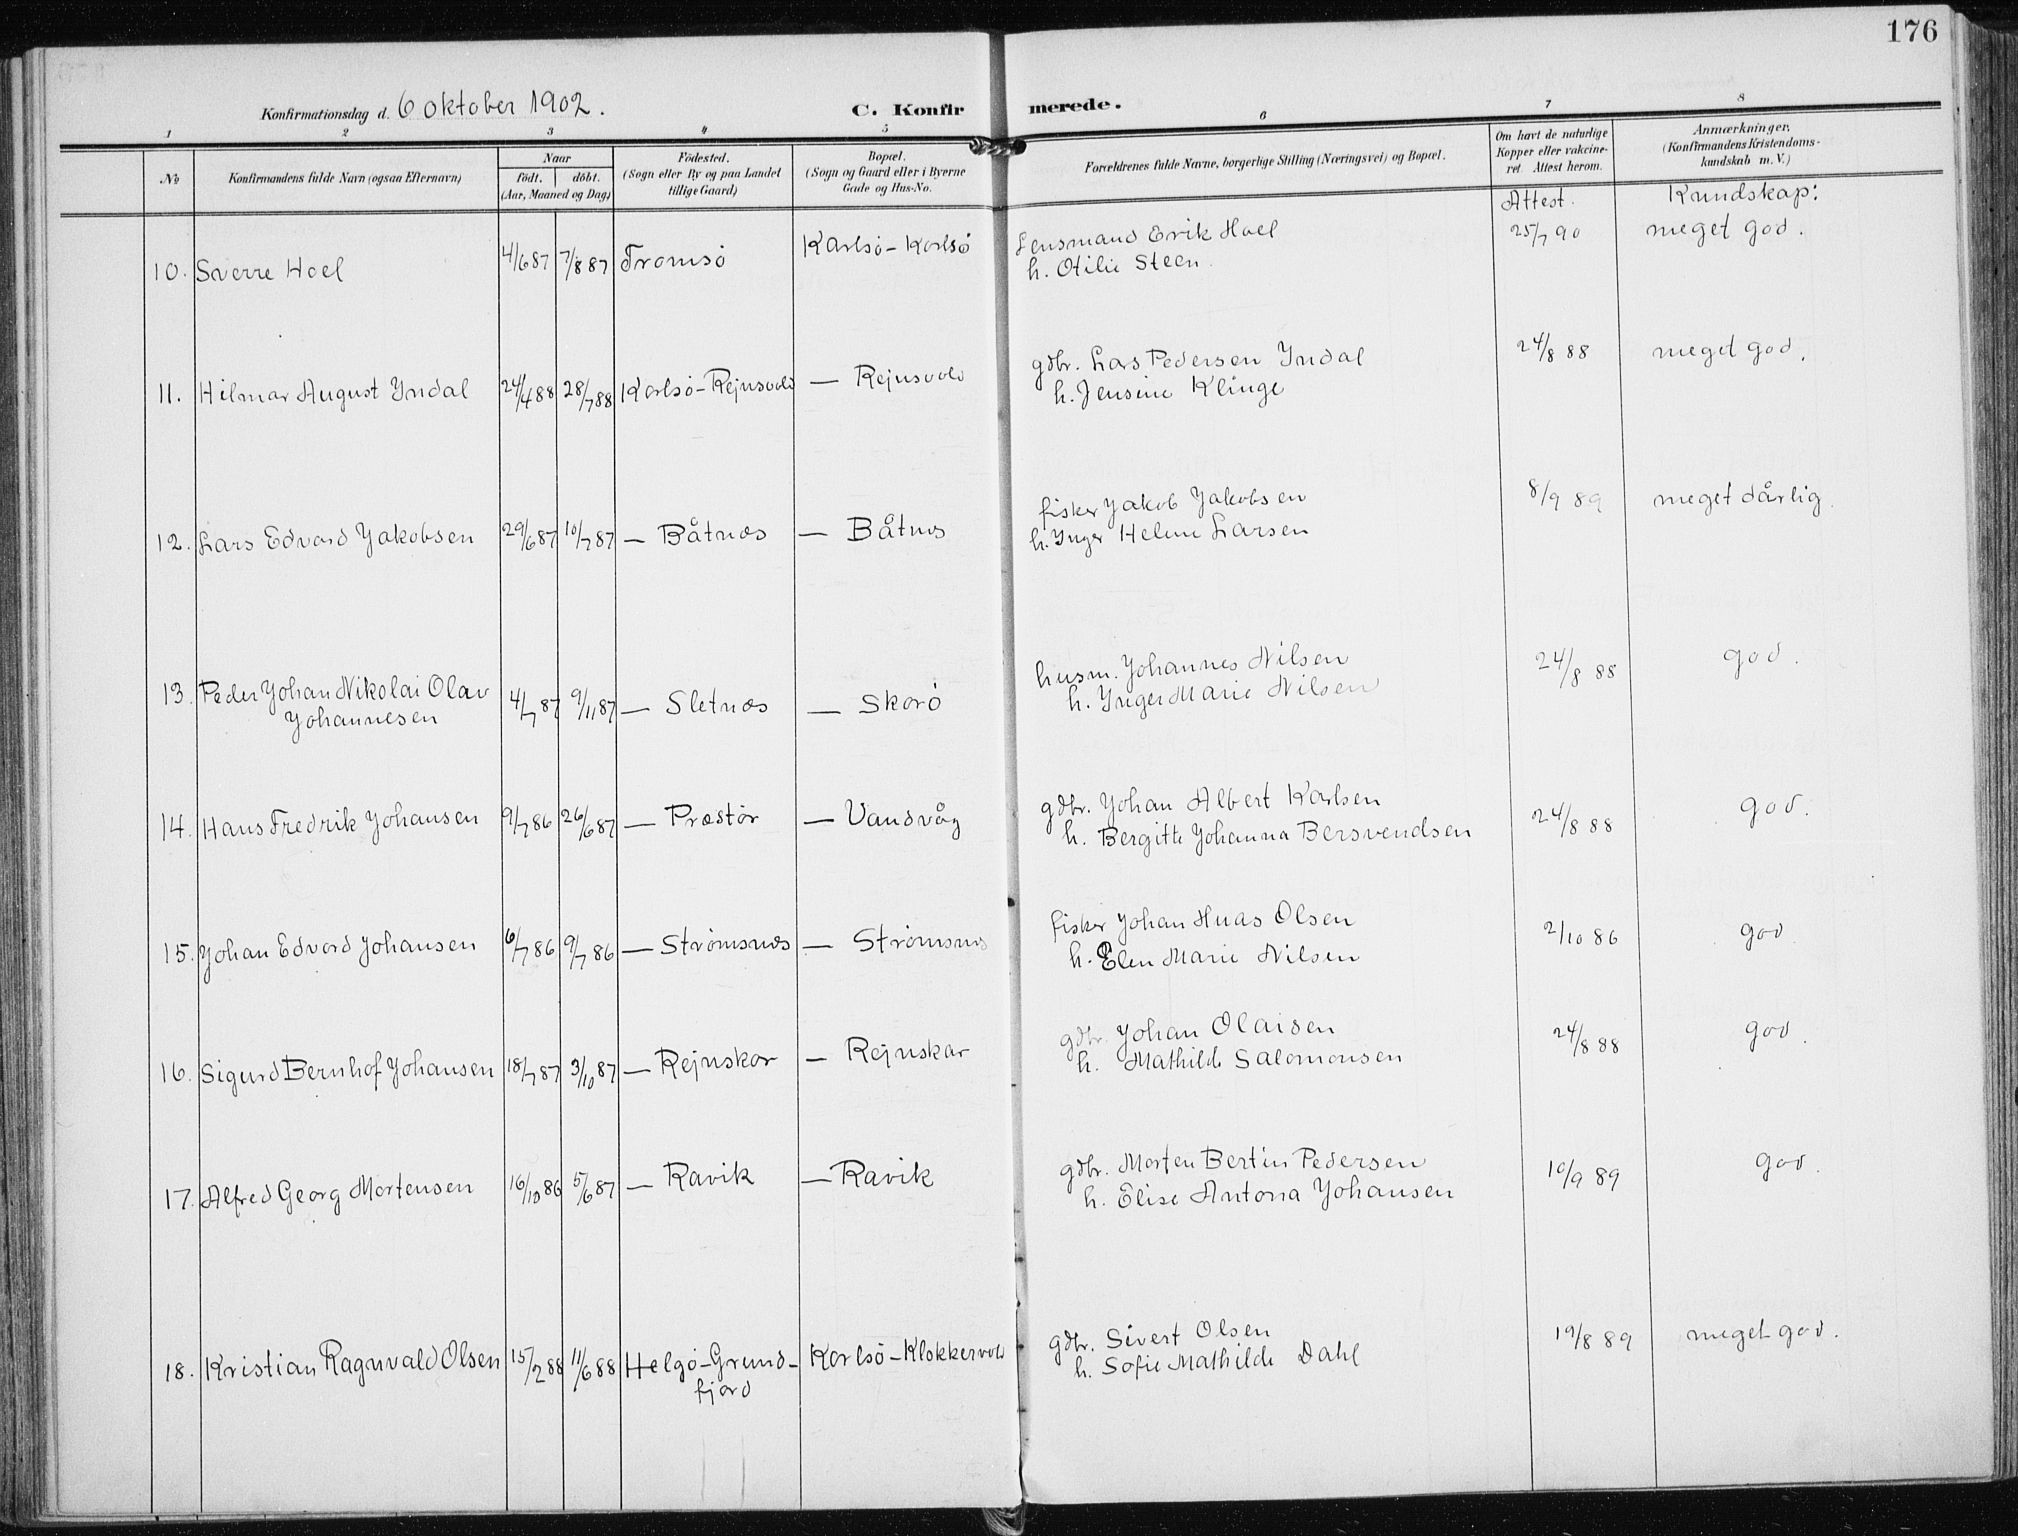 176
Konfirmationsdag d. 6 oktober 1902.
C. Konfirmerede.
1 2 3 4 5 6 7 8
№
Konfirmandens fulde Navn (ogsaa Efternavn)
Naar
födt. döbt.
(Aar, Maaned og Dag)
Födested.
(Sogn eller By og paa Landet
tillige Gaard)
Bopæl.
(Sogn og Gaard eller i Byerne
Gade og Hus-No.
Forældrenes fulde Navne, borgerlige Stilling (Næringsvei) og Bopæl.
Om havt de naturlige
Kopper eller vakcine-
ret. Attest herom.
Anmærkninger.
(Konfirmandens Kristendoms-
kundskab m. V.)
Attest. Kundskap:
10. Sverre Hoel 4/6 87 7/8 87 Tromsö Karlsö - Karlsö Lensmand Erik Hoel 25/7 90 meget god.
h. Otilie Steen.
11. Hilmar August Yndal 24/4 88 28/7 88 Karlsö - Rejnsvold — Rejnsvold gdbr. Lars Pedersen Yndal 24/8 88 meget god.
h. Jensine Klinge
12. Lars Edvard Yakobsen 29/6 87 10/7 87 — Båtnæs — Båtnes fisker Yakob Yakobsen 8/9 89 meget dårlig.
h. Inger Helene Larsen
13. Peder Yohan Nikolai Olav 4/7 87 9/11 87 — Sletnæs — Skorö husm. Yohannes Nilsen 24/8 88 god.
Yohannesen h. Ynger Marie Nilsen
14. Hans Fredrik Yohansen 9/7 86 26/6 87 — Præstör — Vandvåg gdbr. Yohan Albert Karlsen 24/8 88 god.
h. Bergitte Yohanna Bersvendsen
15. Yohan Edvard Yohansen 6/7 86 9/7 86 — Strömsnæs — Strömsnes fisker Yohan Huas Olsen 2/10 86 god
h. Elen Marie Nilsen
16. Sigurd Bernhof Yohansen 18/7 87 3/10 87 — Rejnskar — Rejnskar gdbr. Yohan Olaisen 24/8 88 god.
h. Mathilde Salomonsen
17. Alfred Georg Mortensen 16/10 86 5/6 87 — Ravik — Ravik gdbr. Morten Bertin Pedersen 10/9 89 god.
h. Elise Antona Yohansen
18. Kristian Ragnvald Olsen 15/2 88 11/6 88 Helgö - Grund- Karlsö - Klokkervold gdbr. Sivert Olsen 19/8 89 meget god.
fjord h. Sofie Mathilde Dahl